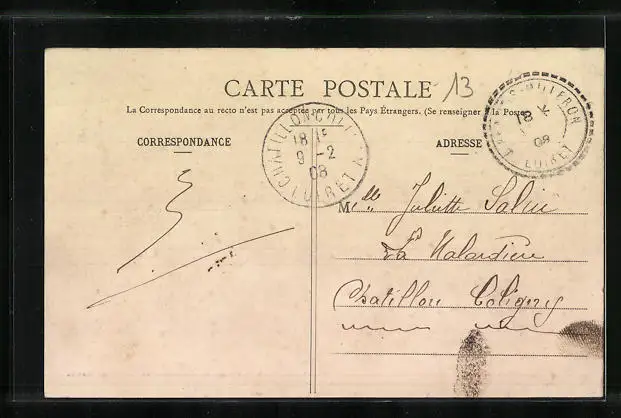 CARTE POSTALE 13
La Correspondance au recto n'est pas acceptée par tous les Pays Étrangers. (Se renseigner à la Poste
CORRESPONDANCE
ADRESSE
CHATILLON-COLI
18 15
9 -2
08
LOIRET
MILLERON
18
08
LOIRET
Mlle Juliette
La Malardière
Chatillon Coligny